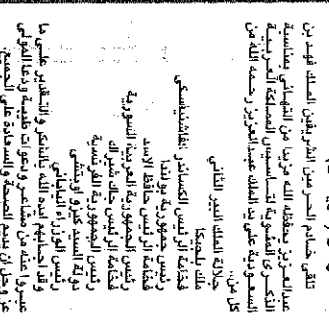 تلقى خادم الحرمين الشريفين الملك فهد بن
عبدالعزيز يحفظه الله مزيدا من التهاني بمناسبة
الذكرى المئوية لتأسيس المملكة العربية
السعودية على يد الملك عبدالعزيز رحمه الله من
كل من..
جلالة الملك البير الثاني
ملك بلجيكا
فخامة الرئيس الكساندر كفاشنيفسكي
رئيس جمهورية بولندا
فخامة الرئيس حافظ الاسد
رئيس الجمهورية العربية السورية
فخامة الرئيس جاك شيراك
رئيس الجمهورية الفرنسية
دولة السيد كيزو اوبتشي
رئيس الوزراء الياباني
وقد اجابهم ايده الله بالشكر والتقدير على ما
عبروا عنه من مشاعر ودعوات طيبة ودعا المولى
عز وجل ان يديم الصحة والسعادة على الجميع.